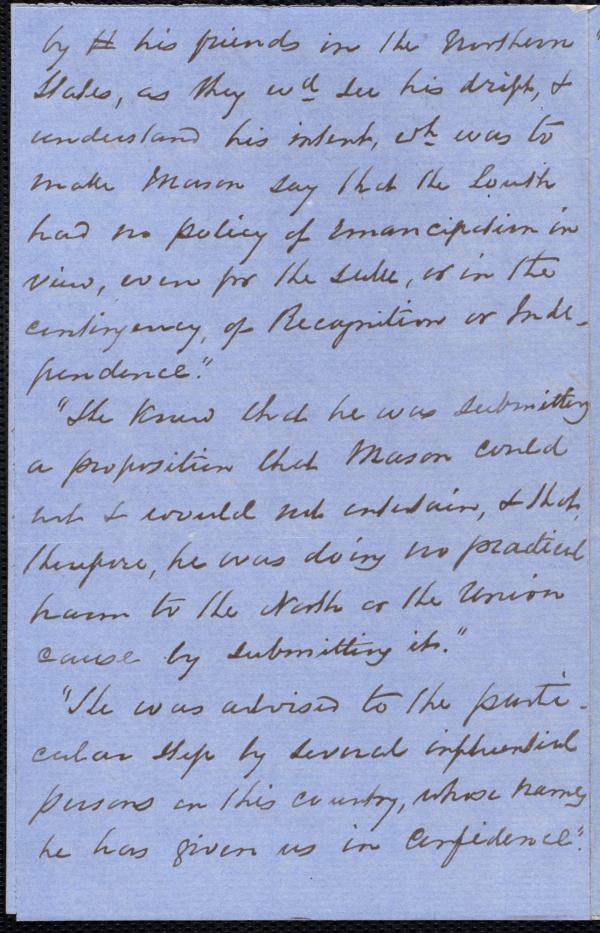 by H his friends in the Northern
States, as they wd see his drift, &
understand his intent, wh was to
make Mason say that the South
had no policy of emancipation in
view, even for the sake, or in the
contingency, of Recognition or Inde-
pendence."
"He knew that he was submitting
a proposition that Mason could
not & would not entertain, & that,
therefore, he was doing no practical
harm to the North or the Union
cause by submitting it."
"He was advised to the parti-
cular step by several influential
persons in this country, whose names
he has given us in confidence".